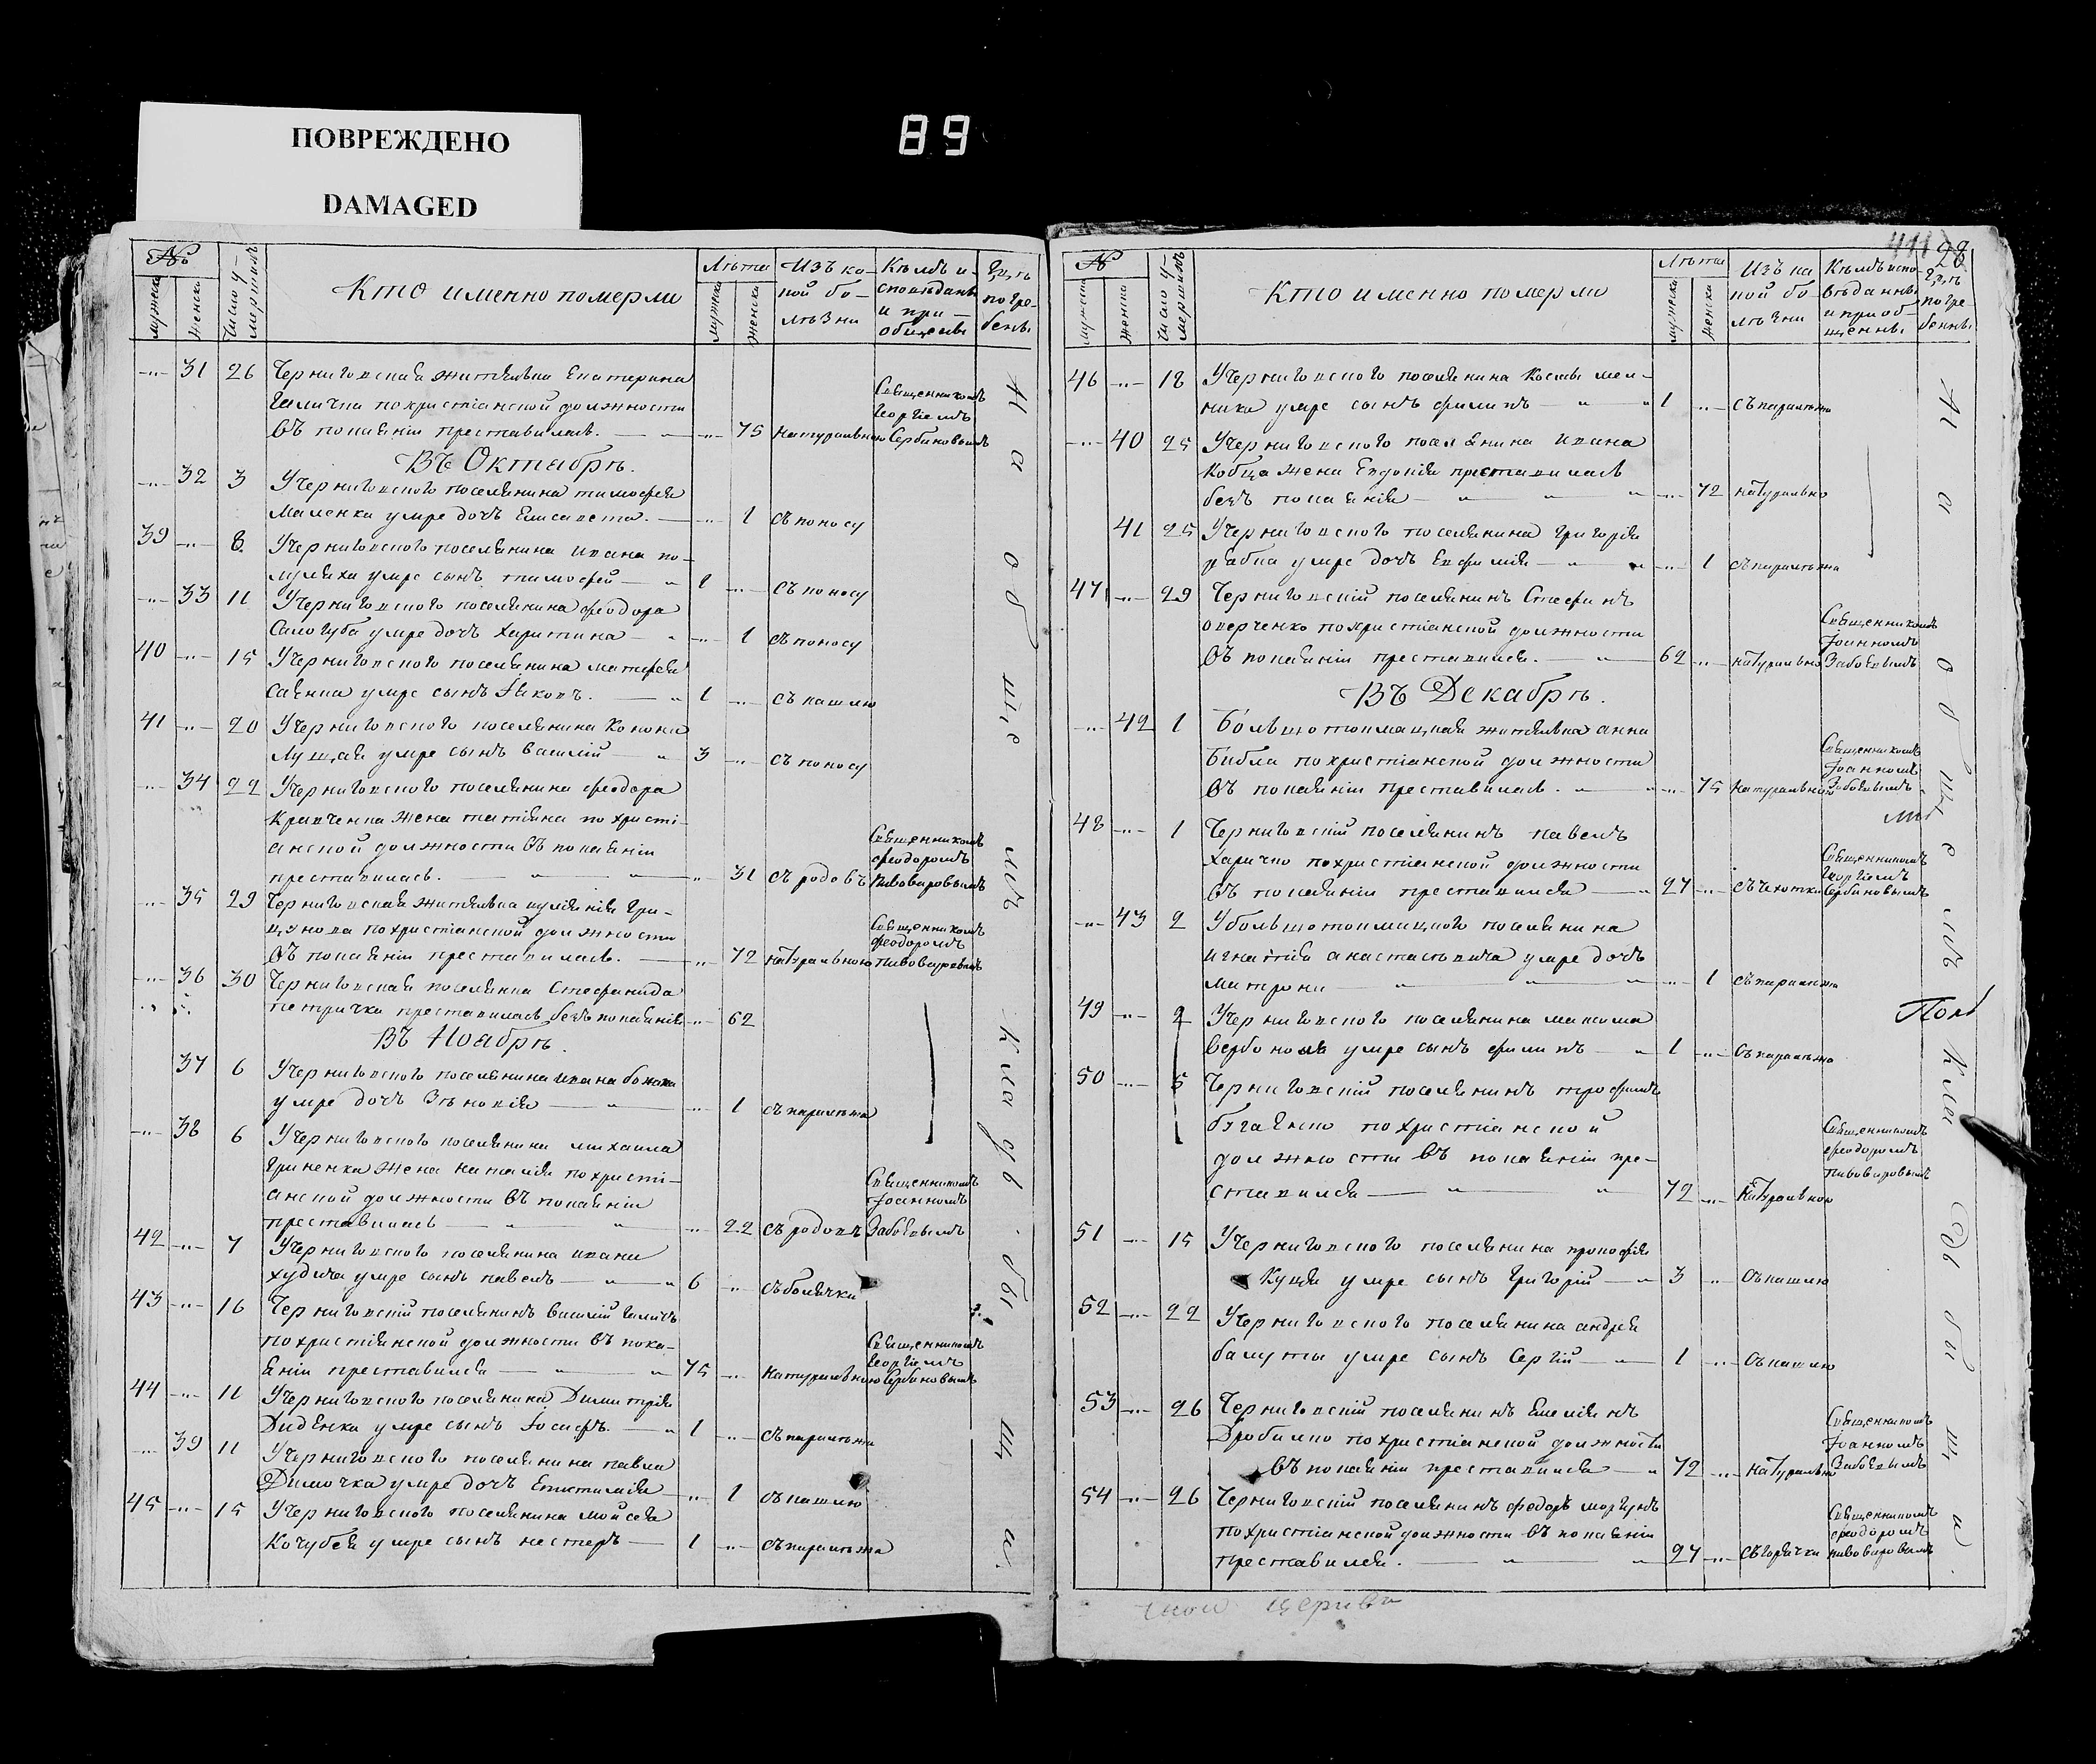 ПОВРЕЖДЕНО
DAMAGED
89
№
мужска
женска
Число у-
мершихъ
Кто именно померли
Лѣта
мужска
женска
Изъ ка-
кой бо-
лѣзни
Кѣмъ и-
сповѣданъ
и при-
общены
Гдѣ
погре-
бены
31 26 Черниговская жителька Екатерина
Галичка похристіанской должности
въ покаяніи преставилась. 75 натурально
Священникомъ
Георгіемъ
Сербиновымъ
Въ Октябрѣ.
32 3 У черниговского поселянина тимофея
Маленка умре дочъ Елисавета. 1 съ поносу
39 8. У черниговского поселянина ивана по-
муляха умре сынъ тимофей 1 съ поносу
33 11 У черниговского поселянина феодора
Салогуба умре дочъ Харитина 1 съ поносу
40 15 У черниговского поселянина матфея
Савенка умре сынъ Яковъ. 1 съ кашлю
41 20 У черниговского поселянина Конона
Лущая умре сынъ василій 3 съ поносу
34 22 У черниговского поселянина феодора
Кравченка жена татіяна по христі-
анской должности въ покаяніи
преставилась. 31 съ родовъ
Священникомъ
феодоромъ
Пивоваровымъ
35 29 Черниговская жителька иуліянія Гри-
цунова похристіанской должности
въ покаяніи преставилась. 72 натурально
Священникомъ
феодоромъ
пивоваровымъ
36 30 Черниговская поселянка Стефанида
петричка преставилась безъ покаянія 62
Въ Ноябрѣ.
37 6 У черниговского поселянина ивана
умре дочъ Зѣновія 1 съ паралѣжа
38 6 У черниговского поселянина михаила
Гриненка жена наталія похристі-
анской должности въ покаяніи
преставилась 22 съ родовъ
Священникомъ
Іоанномъ
Забояовымъ
42 7 У черниговского поселянина ивана
худича умре сынъ павелъ 6 съ болячки
43 16 Черниговскій поселянинъ василій Галичъ
похристіянской должности въ пока-
яніи преставился 75 натурально
Священникомъ
Георгіемъ
Сербиновымъ
44 11 У черниговского поселянина Димитрія
Диденка умре сынъ Іосифъ. 1 съ паралѣжа
39 11 У черниговского поселянина павла
Димочка умре дочъ Епистимія 1 съ кашлю
45 15 У черниговского поселянина мойсея
Кочубея умре сынъ нестеръ 1 съ паралѣжа
На
общемъ
кладбищи.
411
28
№
мужска
женска
Число у-
мершихъ
Кто именно померли
Лѣта
мужска
женска
Изъ ка
кой бо
лѣзни
Кѣмъ испо
вѣданы
и приоб-
щенны
Гдѣ
погре
бенны
46 18 У черниговского поселянина Космы мел-
ника умре сынъ филипъ 1 съ паралѣжа
40 25 У черниговского поселянина ивана
Кобца жена Евдокія преставилась
безъ покаянія 72 натурально
41 25 У черниговского поселянина Григорія
рабка умре дочъ Евфимія 1 съ паралѣжа
47 29 Черниговскій поселянинъ Стефанъ
оверченко похристіанской должности
въ покаяніи преставился. 62 натурально
Священникомъ
Іоанномъ
Забояовымъ
Въ Декабрѣ.
42 1 Большотокмацкая жителька анна
Библа похристіанской должности
въ покаяніи преставилась. 75 натурально
Священникомъ
Іоанномъ
48 1 Черниговскій поселянинъ павелъ
харичко похристіанской должности
въ покаяніи преставился 27 съ чехотки
Священникомъ
Георгіемъ
Сербиновымъ
43 2 У большотокмацкого поселянина
игнатія анастасьевича умре дочъ
матрона 1 съ паралѣжа
49 2 У черниговского поселянина максима
вербоноса умре сынъ филипъ 1 съ паралѣжа
50 5 Черниговскій поселянинъ трофимъ
похристіанской
должности въ покаяніи пре-
ставился 72 натурально
Священникомъ
феодоромъ
пивоваровымъ
51 15 У черниговского поселянина прокофія
Куця умре сынъ Григорій 3 съ кашлю
52 22 У черниговского поселянина андрея
баклуты умре сынъ Сергій 1 съ кашлю
53 26 Черниговскій поселянинъ Емеліянъ
Дробилко похристіанской должности
въ покаяніи преставился 72 натурально
Священникомъ
Іоанномъ
54 26 Черниговскій поселянинъ федоръ моргунъ
похристіанской должности въ покаяніи
преставился. 27 съ горячки
Священникомъ
феодоромъ
пивоваровымъ
На
общемъ
кладбищи.
церкви